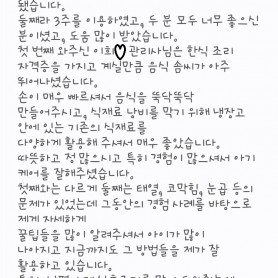 됐습니다.
둘째라 3주를 이용하였고, 두 분 모두 너무 좋으신
분이셨고, 도움 많이 받았습니다.
첫 번째 와주신 이희♥ 관리사님은 한식 조리
자격증을 가지고 계실만큼 음식 솜씨가 아주
뛰어나셨습니다.
손이 매우 빠르셔서 음식을 뚝닥뚝닥
만들어주시고, 식재료 낭비를 막기 위해 냉장고
안에 있는 기존의 식재료를
다양하게 활용해 주셔서 매우 좋았습니다.
따뜻하고 정 많으시고 특히 경험이 많으셔서 아기
케어를 잘해주셨습니다.
첫째와는 다르게 둘째는 태열, 코막힘, 눈곱 등의
문제가 있었는데 그동안의 경험 사례를 바탕으로
제게 자세하게
꿀팁들을 많이 알려주셔서 아이가 많이
나아지고 지금까지도 그 방법들을 제가 잘
활용하고 있습니다.